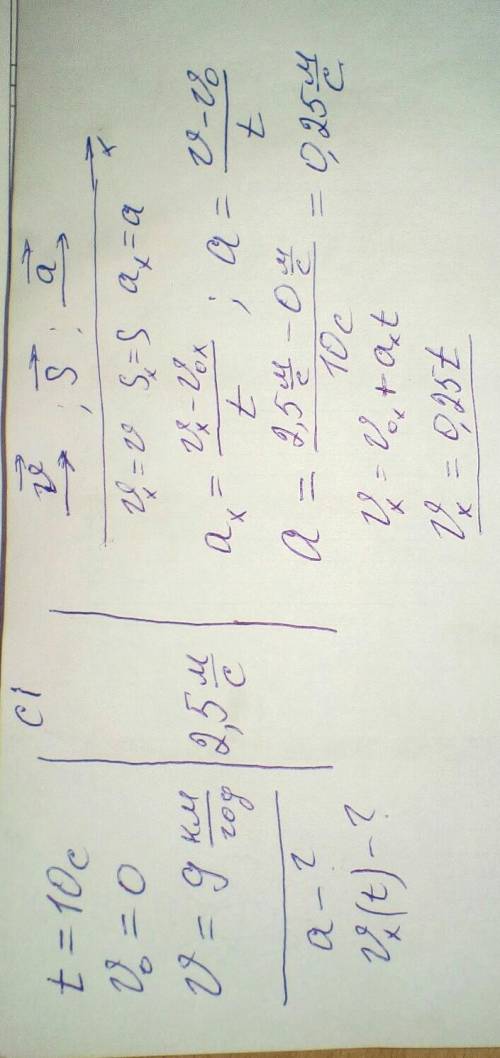 t = 10c
v₀ = 0
v = 9 км/год
a - ?
vₓ(t) - ?
СІ
2,5 м/с
v⃗ ; S⃗ ; a⃗
x
vₓ = v Sₓ = S aₓ = a
aₓ = (vₓ - v₀ₓ)/t ; a = (v - v₀)/t
a = (2,5 м/с - 0 м/с)/10c = 0,25 м/с
vₓ = v₀ₓ + aₓt
vₓ = 0,25t